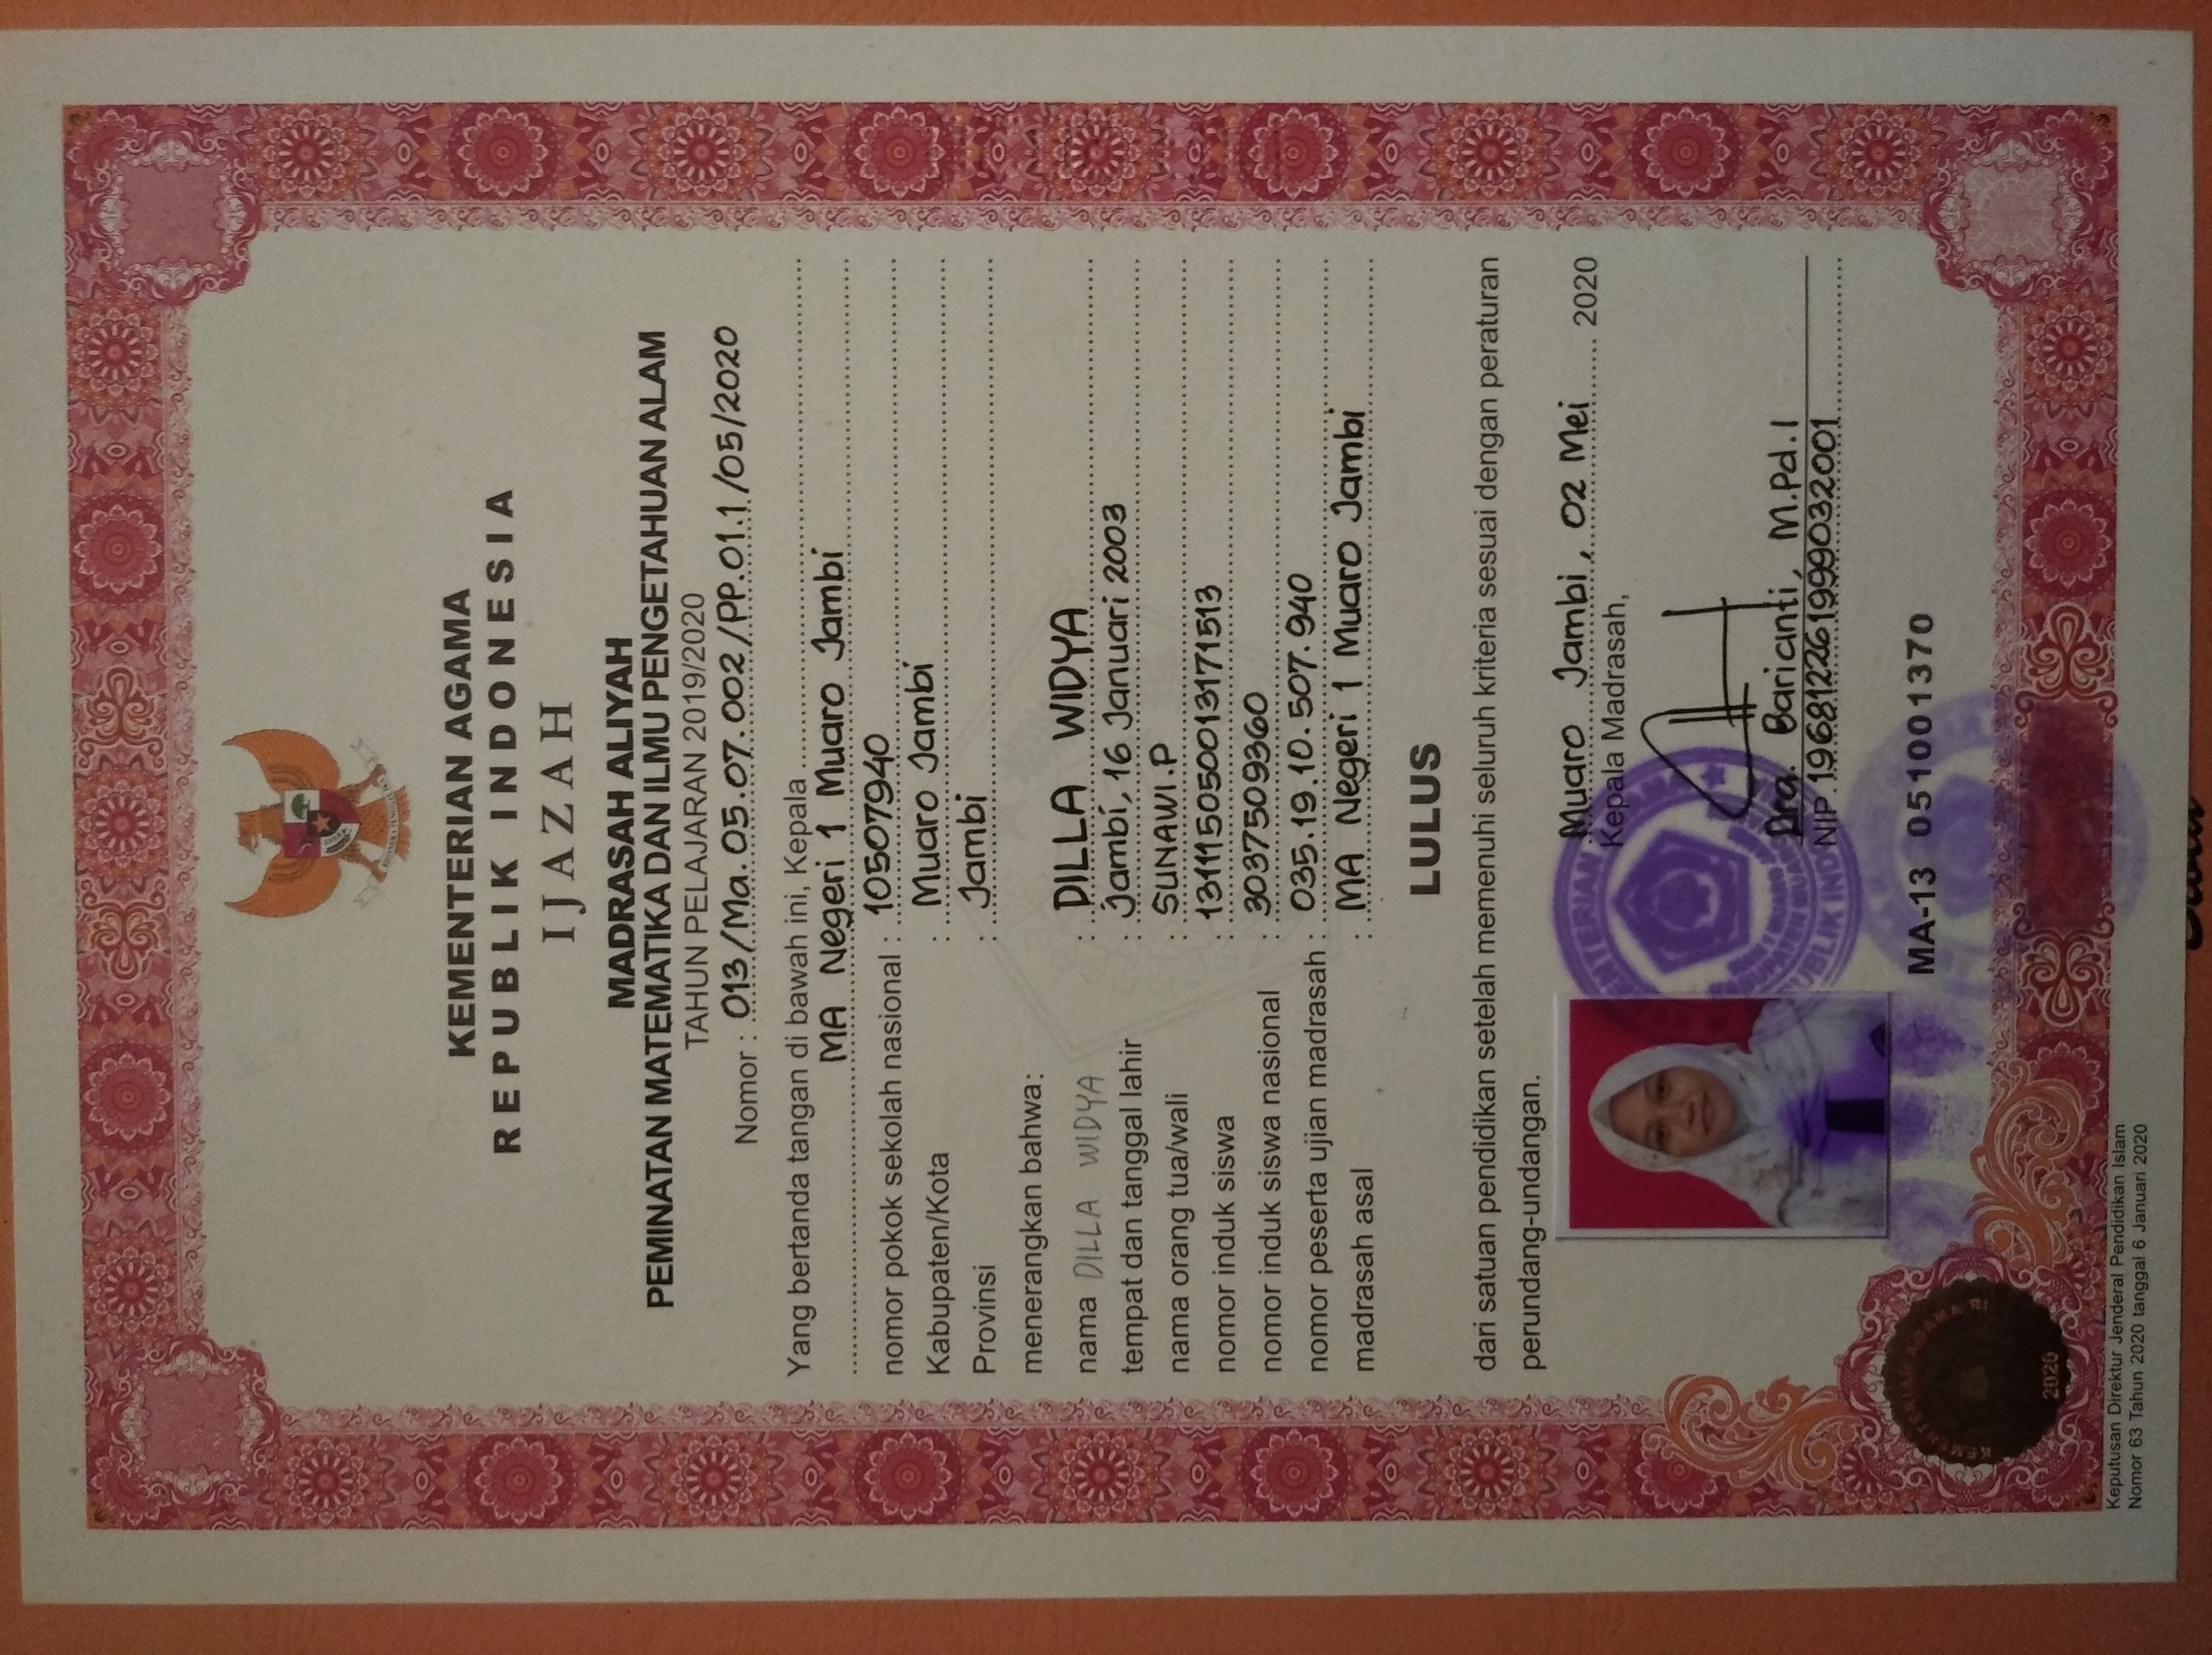 KEMENTERIAN AGAMA
REPUBLIK INDONESIA
IJAZAH
MADRASAH ALIYAH
PEMINATAN MATEMATIKA DAN ILMU PENGETAHUAN ALAM
TAHUN PELAJARAN 2019/2020
Nomor : 013/Ma.05.07.002/PP.01.1/05/2020
Yang bertanda tangan di bawah ini, Kepala
MA Negeri 1 Muaro Jambi
nomor pokok sekolah nasional : 10507940
Kabupaten/Kota : Muaro Jambi
Provinsi : Jambi
menerangkan bahwa:
nama DILLA WIDYA : DILLA WIDYA
tempat dan tanggal lahir : Jambi, 16 Januari 2003
nama orang tua/wali : SUNAWI.P
nomor induk siswa : 131111505001317 1513
nomor induk siswa nasional : 3037509360
nomor peserta ujian madrasah : 035.19.10.507.940
madrasah asal : MA Negeri 1 Muaro Jambi
LULUS
dari satuan pendidikan setelah memenuhi seluruh kriteria sesuai dengan peraturan
perundang-undangan.
Muaro Jambi, 02 Mei 2020
Kepala Madrasah,
Dra. Barianti, M.Pd.I
NIP.196812261999032001
MA-13 051001370
KEMENTERIAN AGAMA RI
2020
Keputusan Direktur Jenderal Pendidikan Islam
Nomor 63 Tahun 2020 tanggal 6 Januari 2020